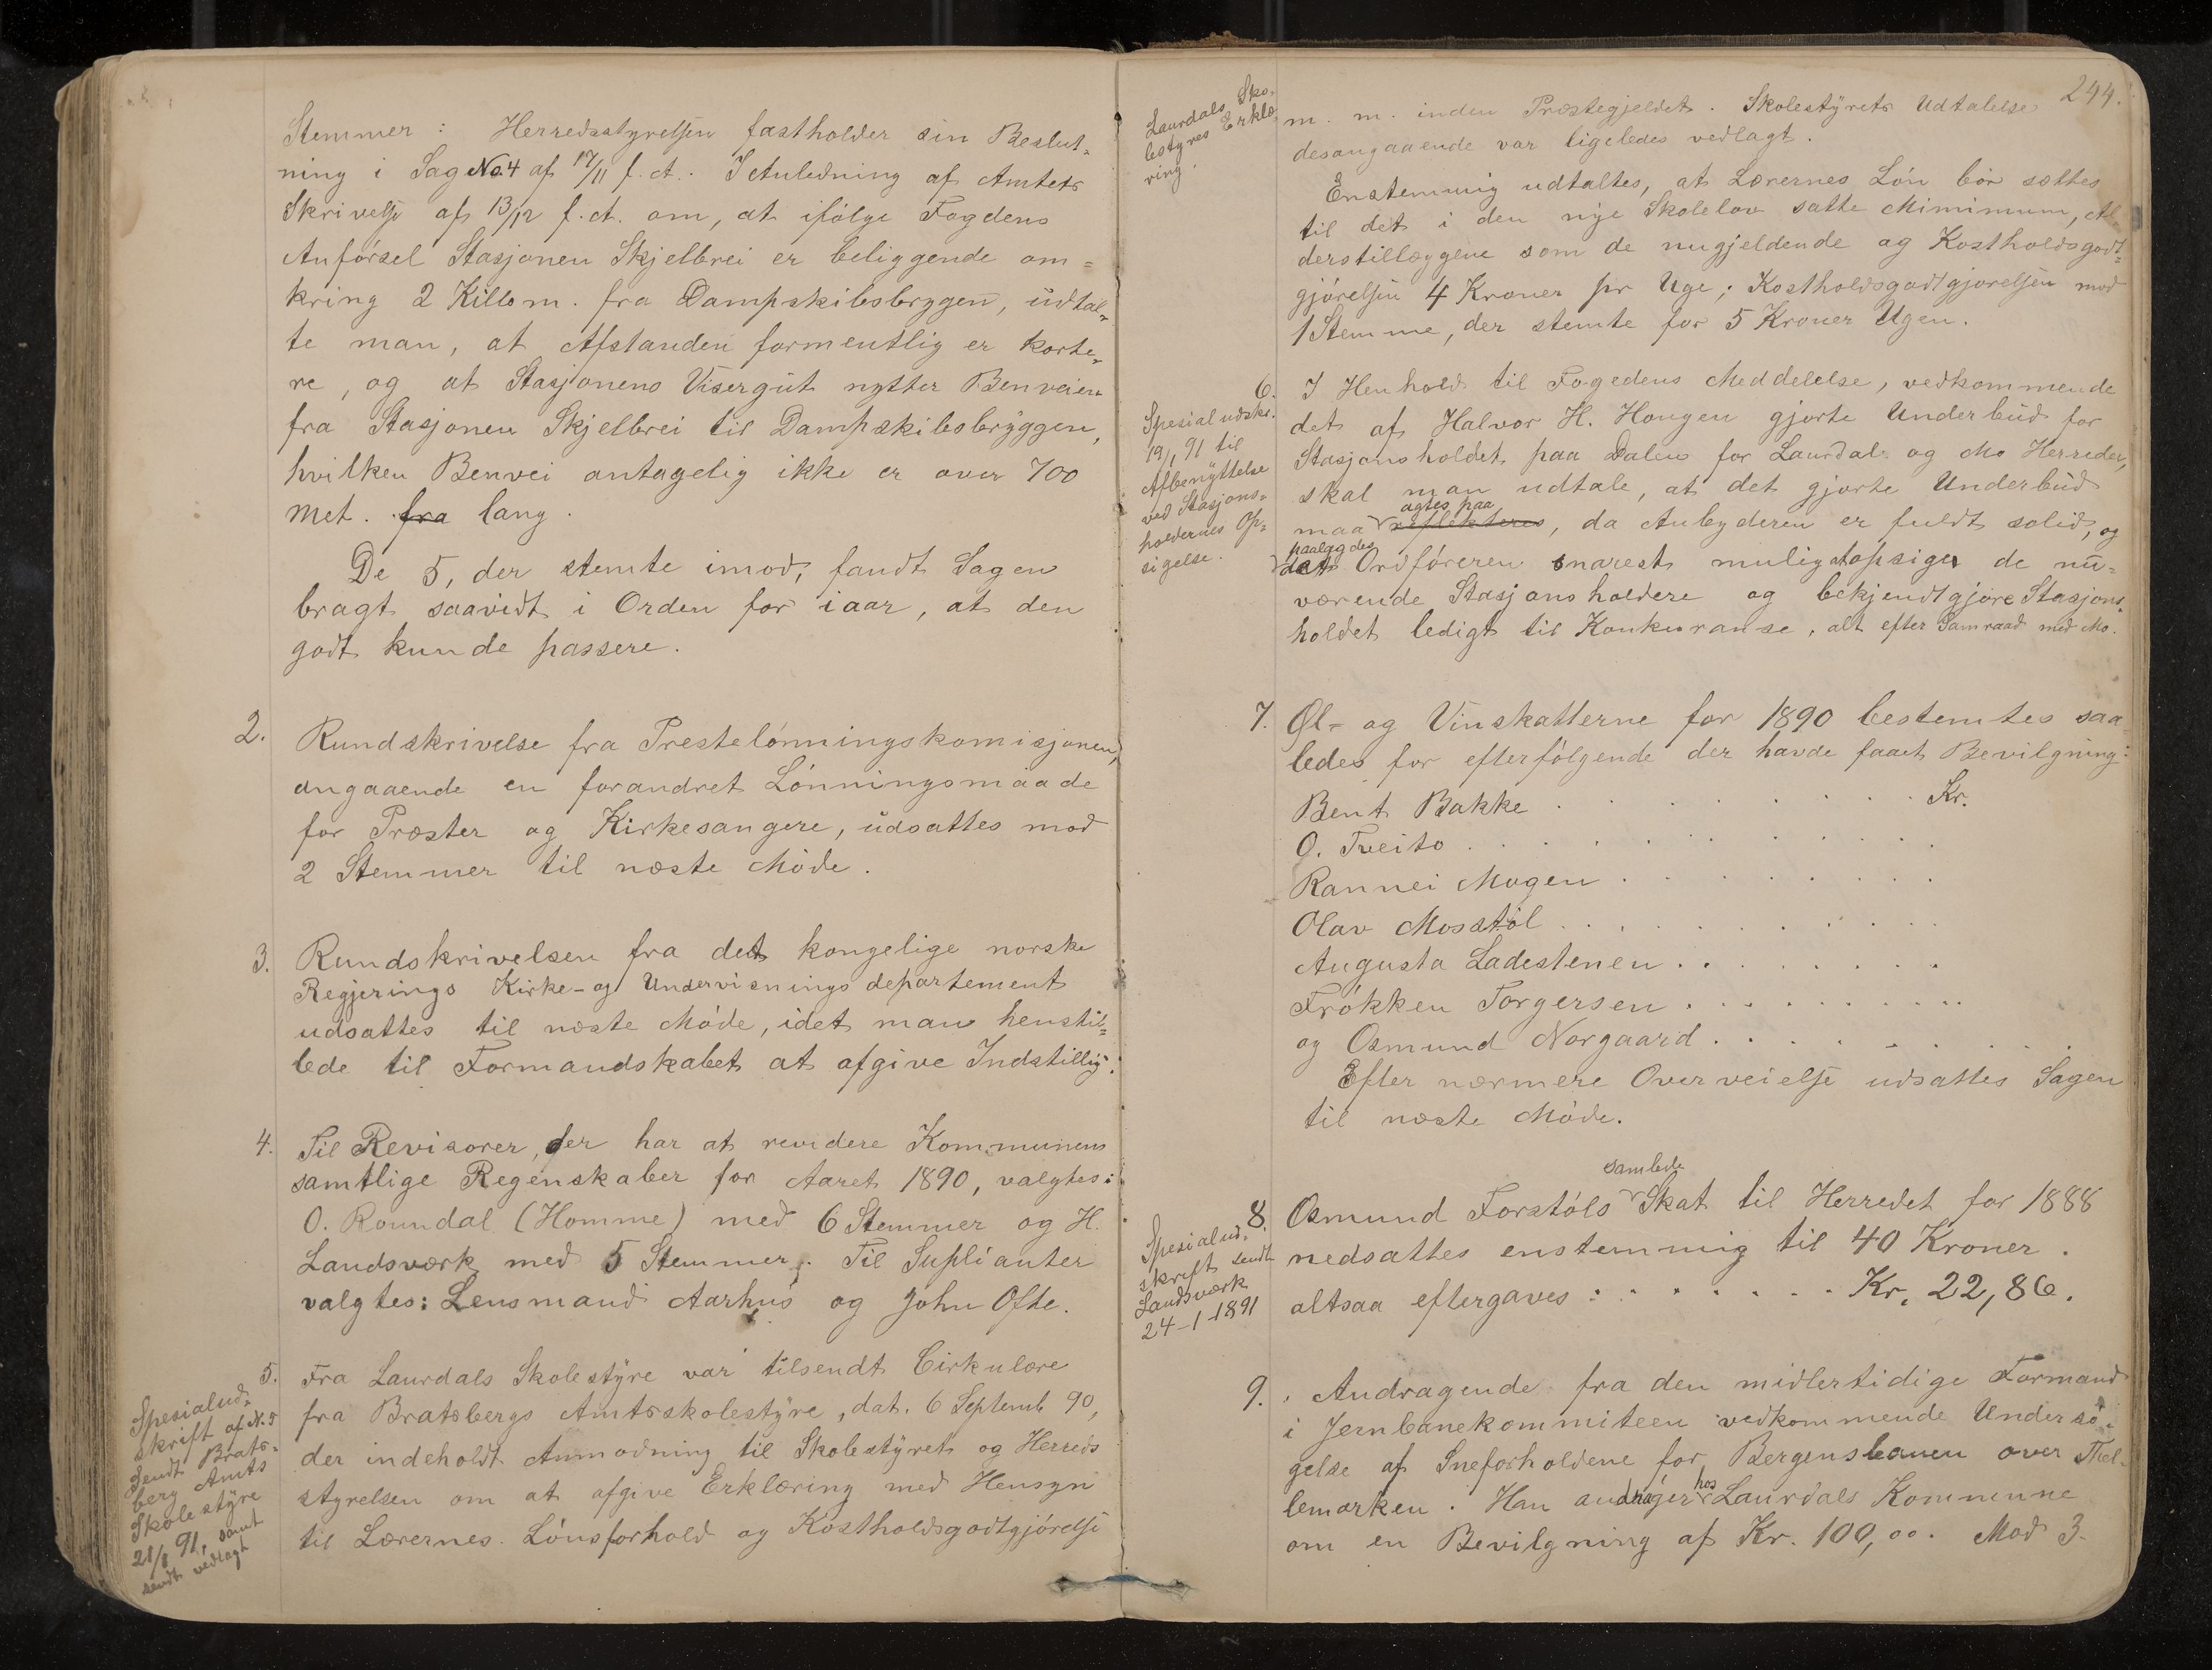 Stemmer : Herredsstyrelsen fastholder sin Beslut-
ning i Sag No. 4 af 17/11 f. A. I Anledning af Amtets
Skrivelse af 13/12 f. A. om, at ifölge Fogdens
Anförsel Stasjonen Skjelbrei er beliggende om=
kring 2 Killom. fra Dampskibsbryggen, udtal-
te man, at Afstanden formentlig er korte-
re, og at Stasjonens Visergut nytter Benveien
fra Stasjonen Skjelbrei til Dampskibsbryggen,
hvilken Benvei antagelig ikke er over 700
Met. fra lang.
De 5, der stemte imod, fandt Sagen
bragt saavidt i Orden for iaar, at den
godt kunde passere.
2. Rundskrivelse fra Prestelönningskomisjonen,
angaaende en forandret Lönningsmaade
for Præster og Kirkesangere, udsattes mod
2 Stemmer til næste Möde.
3. Rundskrivelsen fra det kongelige norske
Regjerings Kirke- og Undervisningsdepartement
udsattes til næste Möde, idet man henstil=
lede til Formandskabet at afgive Indstillig.
4. Til Revisorer, der har at revidere Kommunens
samtlige Regenskaber for Aaret 1890, valgtes:
O. Roundal (Homme) med 6 Stemmer og H.
Landsværk med 5 Stemmer. Til Suplianter
valgtes: Lensmand Aarhus og John Ofte.
Spesialud-
skrift af N. 5
sendt Brats-
berg Amts
Skolestyre
21/1 91, samt
sendt vedlagt
5. Fra Laurdals Skolestyre var tilsendt Cirkulære
fra Bratsbergs Amtsskolestyre, dat. 6 Septemb. 90,
der indeholdt Anmodning til Skolestyret og Herreds
styrelsen om at afgive Erklæring med Hensyn
til Lærernes Lönsforhold og Kostholdsgodtgjörelse
244.
Laurdals Sko-
lestyres Erklæ-
ring.
m. m. inden Præstegjeldet. Skolestyrets Udtalelse
desangaaende var ligeledes vedlagt.
Enstemmig udtaltes, at Lærernes Lön bör sættes
til det i den nye Skolelov satte Mimimum, Al-
derstillæggene som de nugjeldende og Kostholdsgodt=
gjörelsen 4 Kroner pr Uge; Kostholdsgodtgjörelsen mod
1 Stemme, der stemte for 5 Kroner Ugen.
Spesialudskr.
19/1 91 til
Afbenyttelse
ved Stasjons-
holdernes Op-
sigelse.
6. I Henhold til Fogedens Meddelelse, vedkommende
det af Halvor H. Hougen gjorte Underbud for
Stasjonsholdet paa Dalen for Laurdal og Mo Herreder,
skal man udtale, at det gjorte Underbud
agtes paa
maa reflekteres, da Anbyderen er fuldt solid, og
paalagdes
det Ordföreren snarest muligst opsiger de nu-
værende Stasjonsholdere og bekjendtgjöre Stasjons-
holdet ledigt til Konkuranse, alt efter Samraad med Mo.
7. Öl- og Vinskatterne for 1890 bestemtes saa
ledes for efterfölgende der havde faaet Bevilgning:
Bent Bakke . . . . . . . . . Kr.
O. Tveito . . . . . . . . .
Rannei Mogen . . . . . . . .
Olav Mosstöl . . . . . . . . .
Augusta Ladestenen . . . . . . . .
Frökken Torgersen . . . . . . . . .
og Osmund Norgaard . . . . . . . .
Efter nærmere Overveielse udsattes Sagen
til næste Möde.
Spesialud-
skrift sendt
Landsværk
24-1-1891
samlede
8. Osmund Forstöls Skat til Herredet for 1888
nedsattes enstemmig til 40 Kroner.
altsaa eftergaves : . . . . . . Kr. 22,86.
9. Andragende fra den midlertidige Formand
i Jernbanekommiteen vedkommende Undersö-
gelse af Sneforholdene for Bergensbanen over Thel-
hos
lemarken. Han andrager Laurdals Kommune
om en Bevilgning af Kr. 100,00. Mod 3